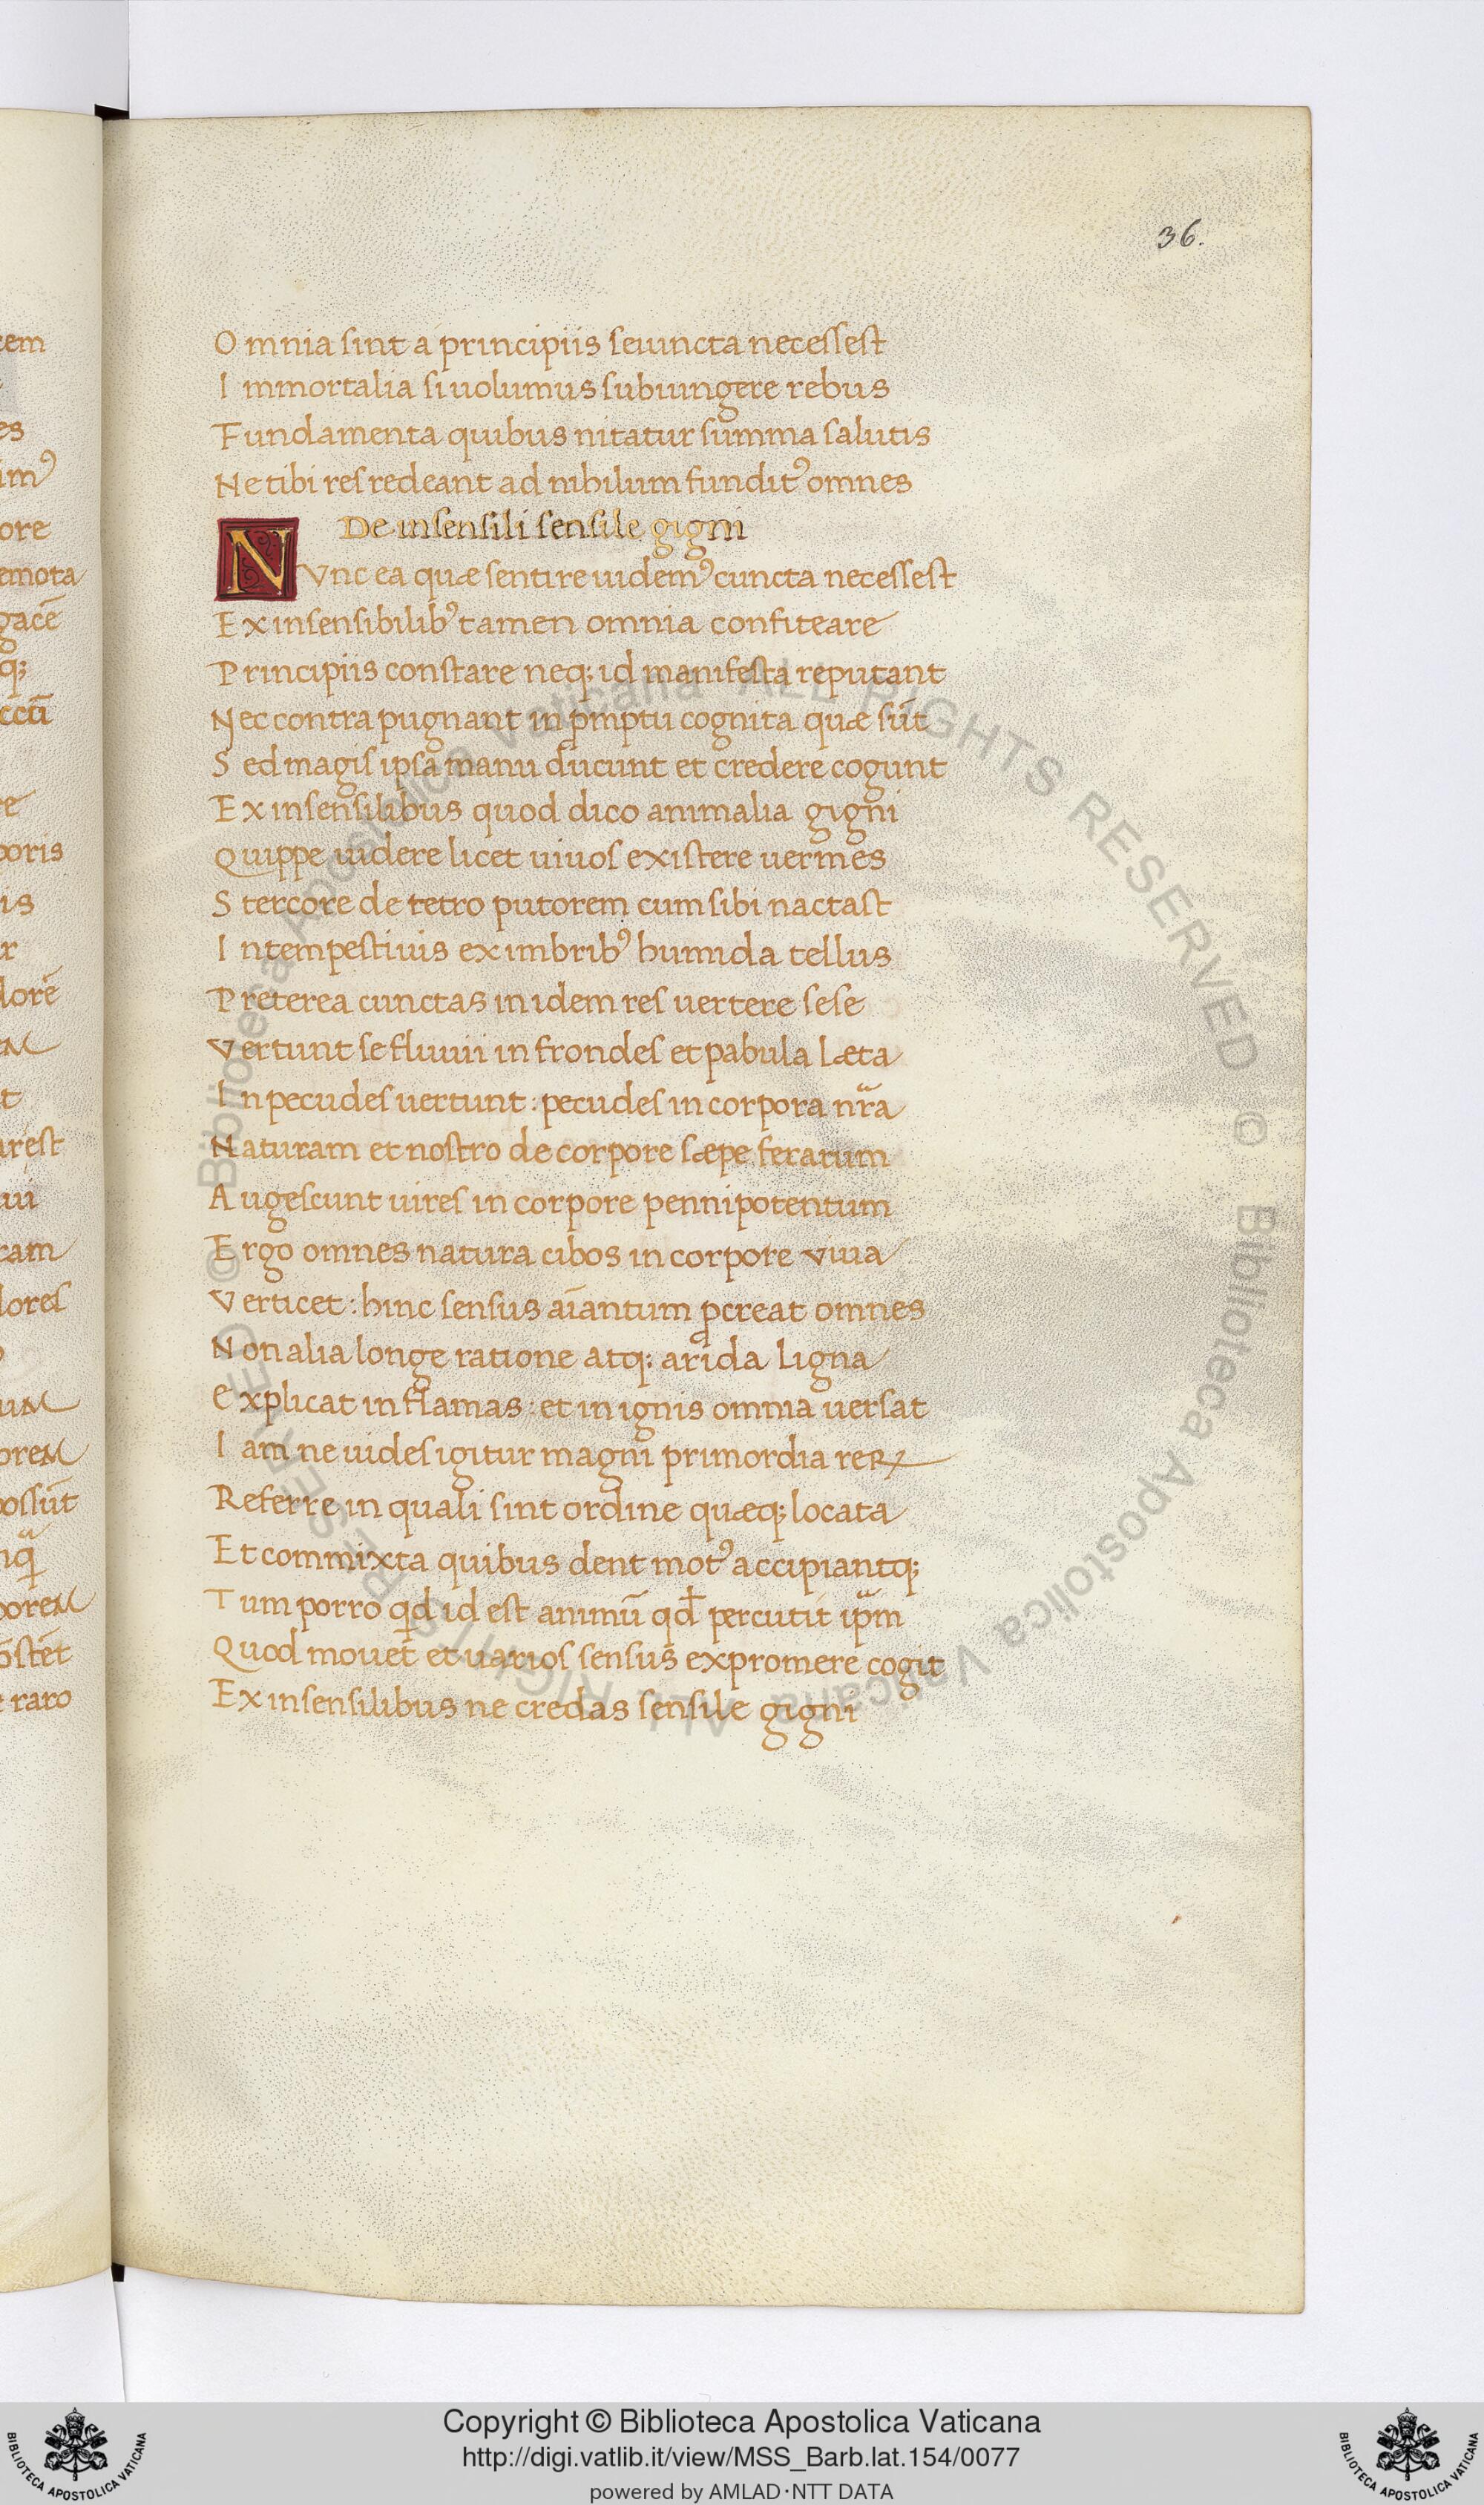 36.
Omnia sint á principiis seiuncta necessest
Immortalia si uolumus subiungere rebus
Fundamenta quibus nitatur summa salutis
Ne tibi res redeant ad nihilum fundit᾽ omnes
De insensili sensile gigni
NVnc ea quæ sentire uidem᾽ cuncta necessest
Ex insensibilib᾽ tamen omnia confiteare
Principiis constare neq; id manifesta reputant
Nec contra pugnant in pmptu cognita quæ sūt
Sed magis ipsa manu ducunt et credere cogunt
Ex insensilibus quod dico animalia gigni
Quippe uidere licet uiuos existere uermes
Stercore de tetro putorem cum sibi nactast
Intempestiuis ex imbrib᾽ humida tellus
Preterea cunctas in idem res uertere sese
Vertunt se fluuii in frondes et pabula læta
In pecudes uertunt: pecudes in corpora nr̄a
Naturam et nostro de corpore sæpe ferarum
Augescunt uires in corpore pennipotentum
Ergo omnes natura cibos in corpore viua
Verticet: hinc sensus aīantum pcreat omnes
Non alia longe ratione atq; arida ligna
Explicat in flamas: et in ignis omnia uersat
Iam ne uides igitur magni primordia reꝝ
Referre in quali sint ordine quæq; locata
Et commixta quibus dent mot᾽ accipiantq;
Tum porro qd id est animū qđ percutit ip̄m
Quod mouet et uarios sensus expromere cogit
Ex insensilibus ne credas sensile gigni
© Biblioteca Apostolica Vaticana ALL RIGHTS RESERVED © Biblioteca Apostolica Vaticana ALL RIGHTS RESERVED
Copyright © Biblioteca Apostolica Vaticana
http://digi.vatlib.it/view/MSS_Barb.lat.154/0077
powered by AMLAD·NTT DATA
BIBLIOTECA APOSTOLICA VATICANA
BIBLIOTECA APOSTOLICA VATICANA